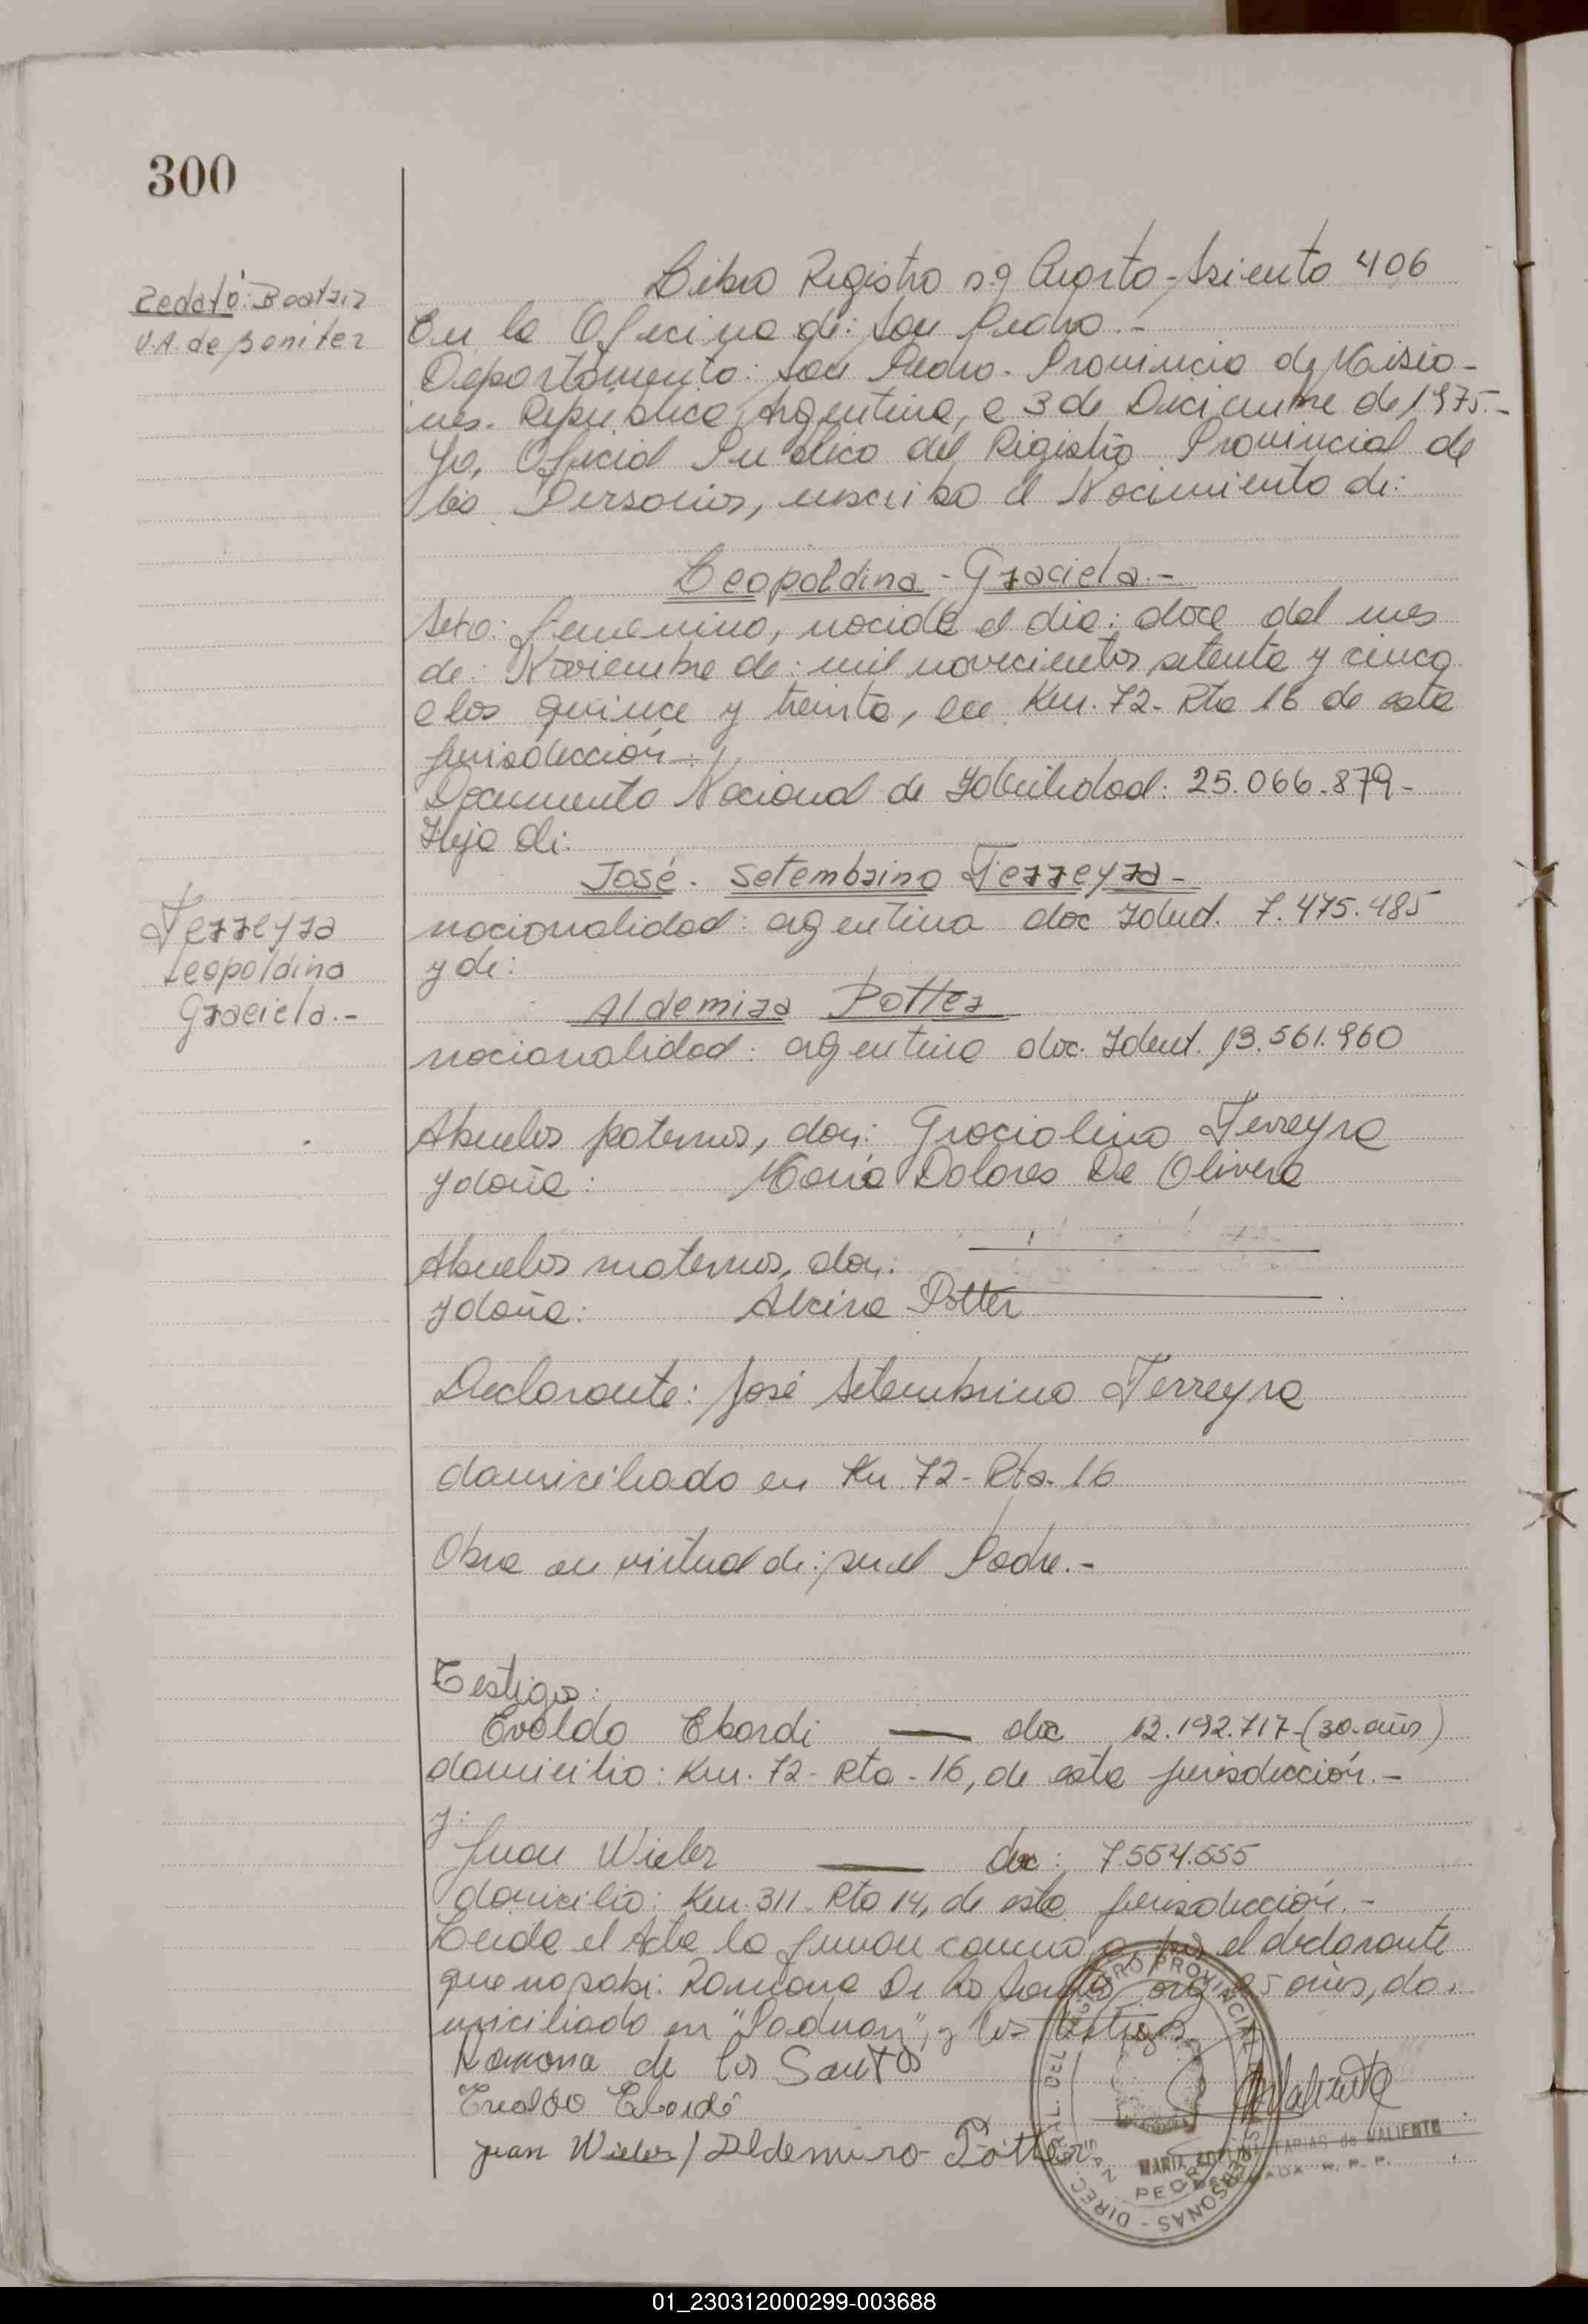 300
Redató: Beatriz
V.A. de Benitez
Libro Registro nº Cuarto - Asiento 406
En la Oficina de: San Pedro.-
Departamento: San Pedro - Provincia de Misio-
nes. República Argentina, a 3 de Diciembre de 1975.-
Yo, Oficial Publico del Registro Provincial de
las Personas, inscribo el Nacimiento de:
Leopoldina - Graciela.-
Sexo: femenino, nacida el dia: doce del mes
de: Noviembre de: mil novecientos setenta y cinco
a las quince y treinta, en Km. 72 - Rta 16 de esta
jurisdicción.-
Documento Nacional de Identidad: 25.066.879-
Hija de:
José - Setembrino Ferreyra -
nacionalidad: argentina doc Ident. 7.475.485
y de:
Ferreyra
Leopoldina
Graciela.-
Aldemira Potter
nacionalidad: argentina doc. Ident. 13.561.960
Abuelos paternos, don: Graciolino Ferreyra
y doña: María Dolores De Olivera
Abuelos maternos, don:
y doña: Alcira Potter
Declarante: José Setembrino Ferreyra
domiciliado en Km. 72 - Rta. 16
Obra en virtud de: ser el Padre.-
Testigos:
Evaldo Ebordi — doc 12.192.717-(30.años)
domicilio: Km. 72 - Rta - 16, de esta jurisdicción.-
y:
Juan Wieler — doc: 7.554.555
domicilio: Km. 311 - Rta 14, de esta jurisdicción.-
Leida el Acta la firman conmigo, por el declarante
que no sabe: Ramona De los Santos, arg. 25 años, do-
miciliada en
y los testigos.
Ramona de los Santos
Evaldo Ebordi
Juan Wieler / Aldemiro Potter
DIREC. GRAL. DEL REGISTRO PROVINCIAL DE LAS PERSONAS -
SAN PEDRO
MARIA FARIAS de VALIENTE
DELEGADA R. P. P.
01_230312000299-003688